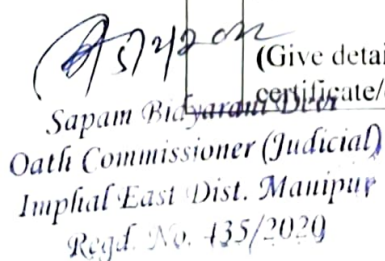 (Give detai
certificate/
Sapam Bidyarani Devi
Oath Commissioner (Judicial)
Imphal East Dist. Manipur
Regd. No. 435/2020